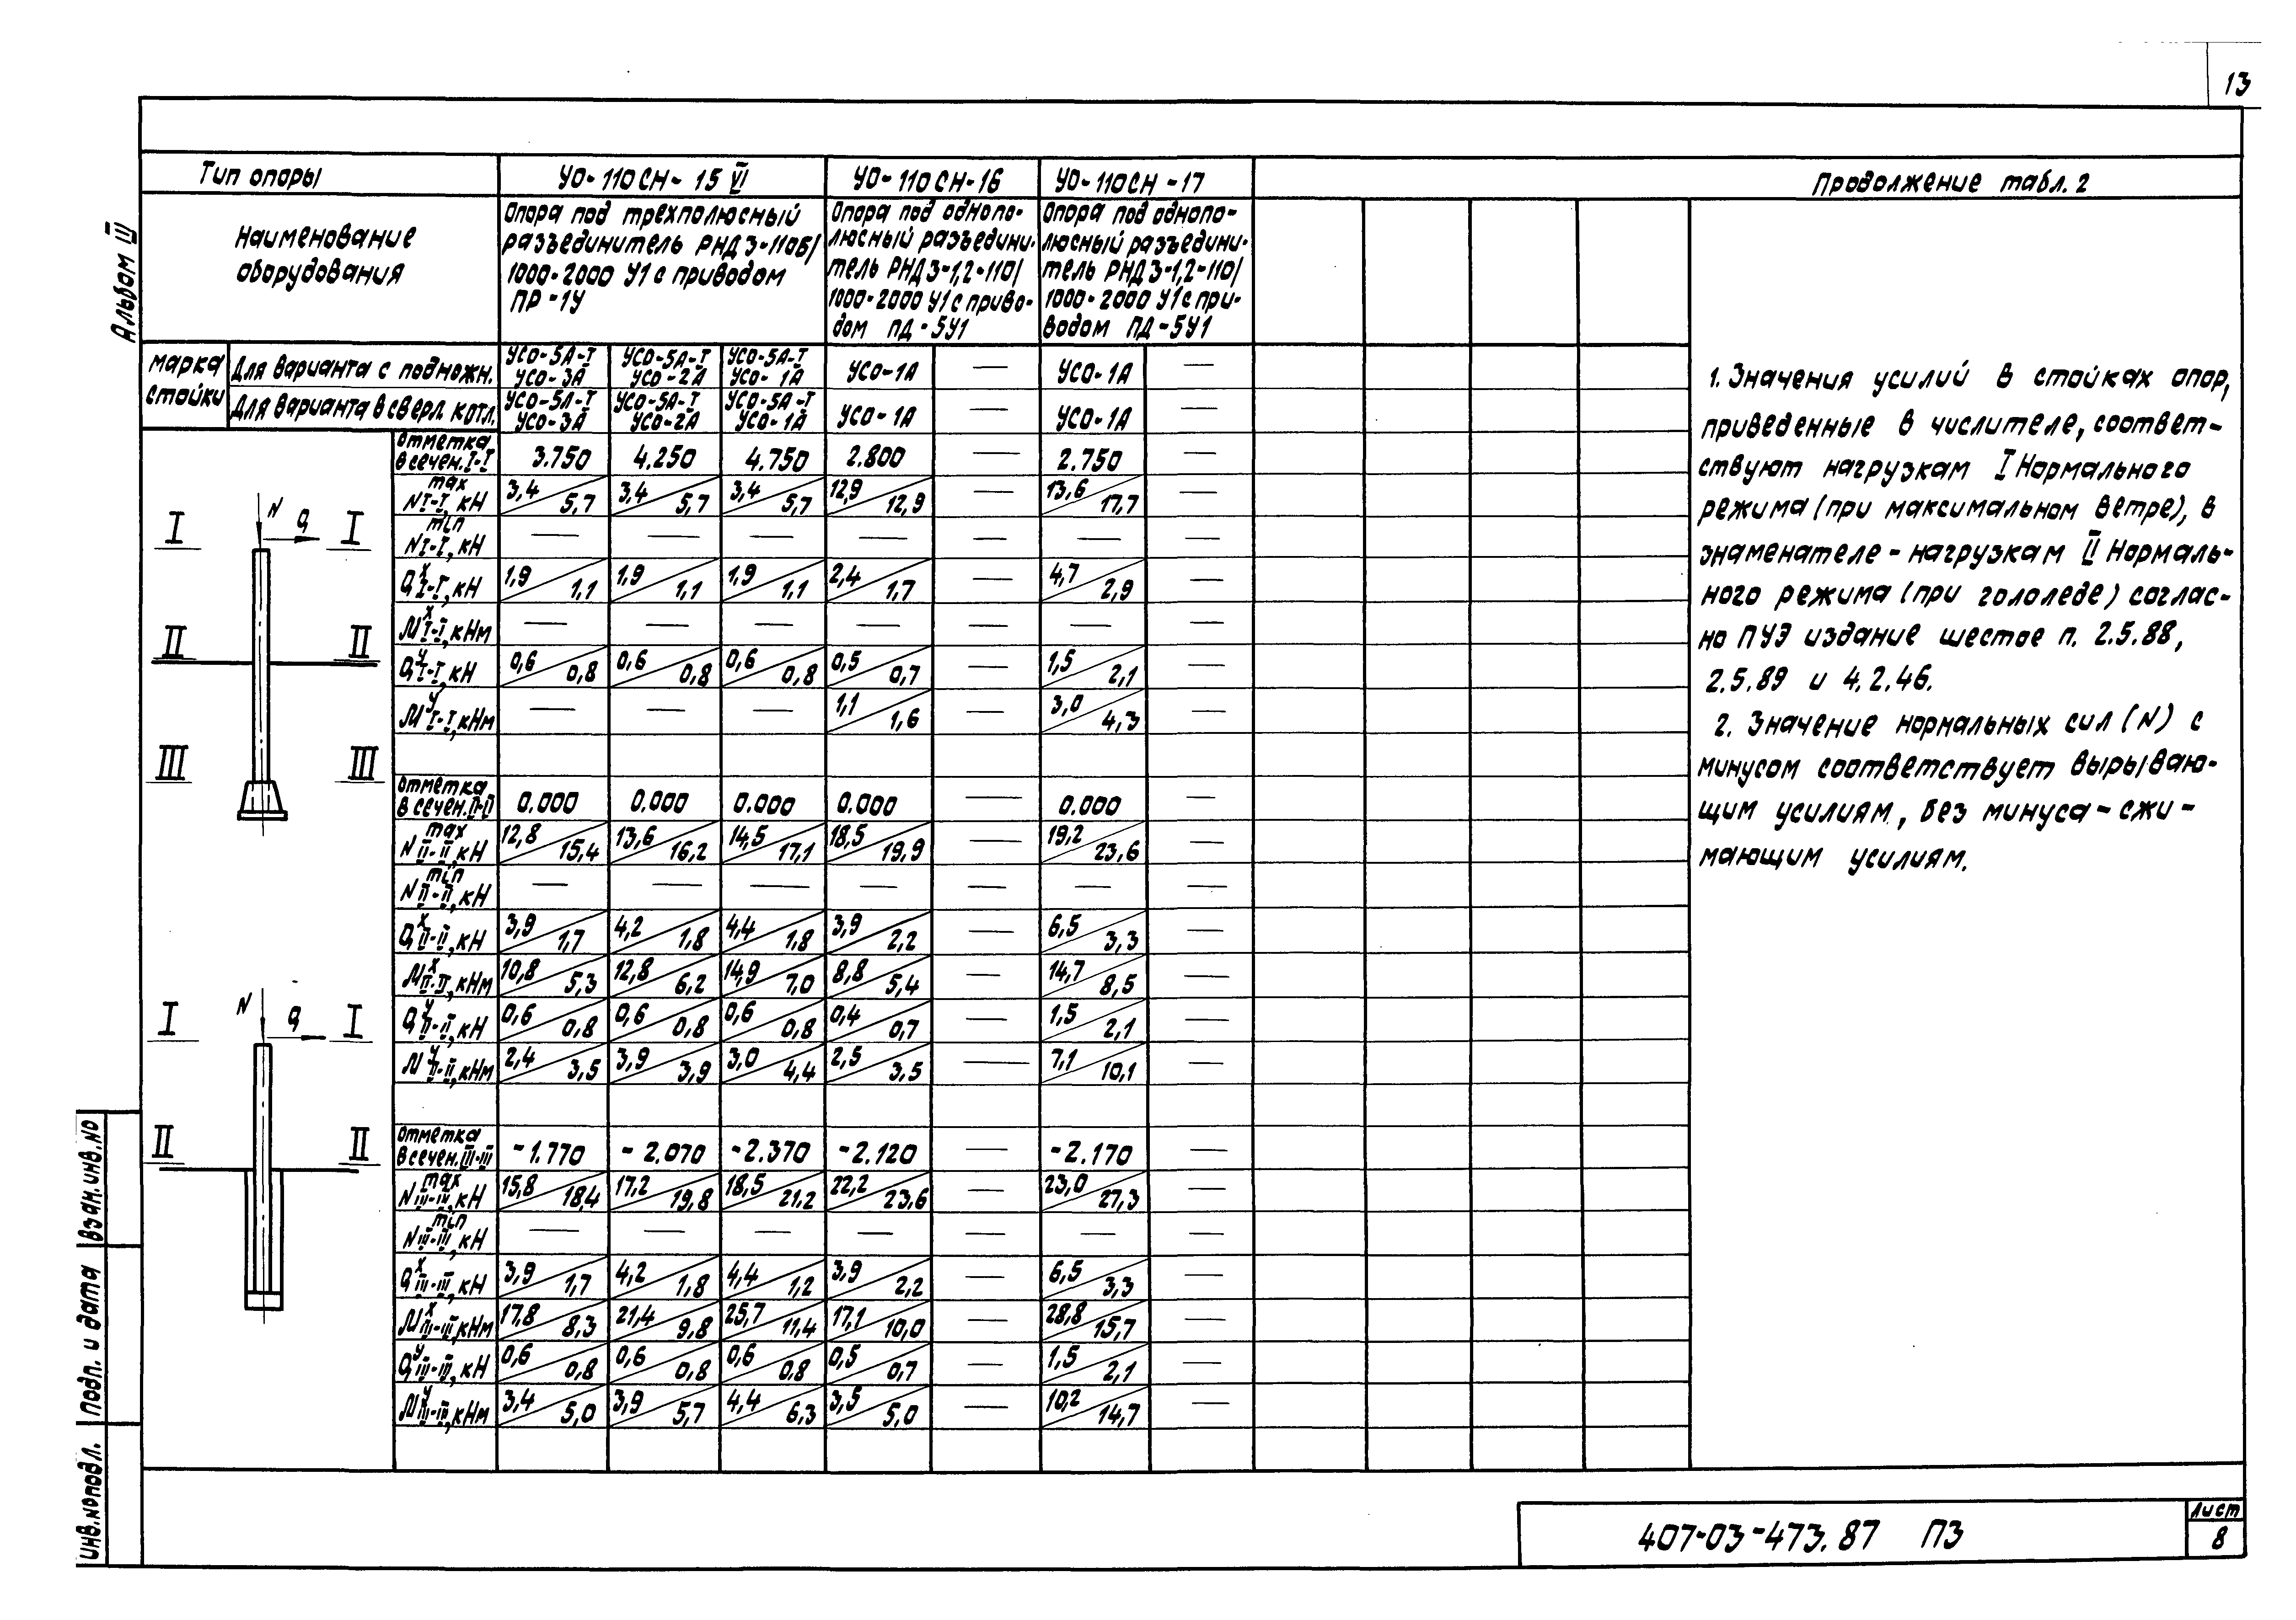 13
Альбом III
Тип опоры
УО-110СН-15 VI
УО-110СН-16
УО-110СН-17
Продолжение табл. 2
Наименование
оборудования
Опора под трехполюсный
разъединитель РНДЗ-110Б/
1000-2000 У1 с приводом
ПР-1У
Опора под однопо-
люсный разъедини-
тель РНДЗ-1,2-110/
1000-2000 У1 с приво-
дом ПД-5У1
Опора под однопо-
люсный разъедини-
тель РНДЗ-1,2-110/
1000-2000 У1 с при-
водом ПД-5У1
марка
стойки
Для варианта с подножн. УСО-5А-Т УСО-3А УСО-5А-Т УСО-2А УСО-5А-Т УСО-1А УСО-1А — УСО-1А —
Для варианта в сверл. котл. УСО-5А-Т УСО-3А УСО-5А-Т УСО-2А УСО-5А-Т УСО-1А УСО-1А — УСО-1А —
Отметка в сечен. I-I 3.750 4.250 4.750 2.800 — 2.750 —
N max I-I, кН 3,4/5,7 3,4/5,7 3,4/5,7 12,9/12,9 — 13,6/17,7 —
N min I-I, кН — — — — — — —
Q x I-I, кН 1,9/1,1 1,9/1,1 1,9/1,1 2,4/1,7 — 4,7/2,9 —
M x I-I, кНм — — — — — — —
Q y I-I, кН 0,6/0,8 0,6/0,8 0,6/0,8 0,5/0,7 — 1,5/2,1 —
M y I-I, кНм — — — 1,1/1,6 — 3,0/4,3 —
Отметка в сечен. II-II 0.000 0.000 0.000 0.000 — 0.000 —
N max II-II, кН 12,8/15,4 13,6/16,2 14,5/17,1 18,5/19,9 — 19,2/23,6 —
N min II-II, кН — — — — — — —
Q x II-II, кН 3,9/1,7 4,2/1,8 4,4/1,8 3,9/2,2 — 6,5/3,3 —
M x II-II, кНм 10,8/5,3 12,8/6,2 14,9/7,0 8,8/5,4 — 14,7/8,5 —
Q y II-II, кН 0,6/0,8 0,6/0,8 0,6/0,8 0,4/0,7 — 1,5/2,1 —
M y II-II, кНм 2,4/3,5 3,9/3,9 3,0/4,4 2,5/3,5 — 7,1/10,1 —
Отметка в сечен. III-III -1.770 -2.070 -2.370 -2.120 — -2.170 —
N max III-III, кН 15,8/18,4 17,2/19,8 18,5/21,2 22,2/23,6 — 23,0/27,3 —
N min III-III, кН — — — — — — —
Q x III-III, кН 3,9/1,7 4,2/1,8 4,4/1,2 3,9/2,2 — 6,5/3,3 —
M x III-III, кНм 17,8/8,3 21,4/9,8 25,7/11,4 17,1/10,0 — 28,8/15,7 —
Q y III-III, кН 0,6/0,8 0,6/0,8 0,6/0,8 0,5/0,7 — 1,5/2,1 —
M y III-III, кНм 3,4/5,0 3,9/5,7 4,4/6,3 3,5/5,0 — 10,2/14,7 —
N Q
I I
II II
III III
N Q
I I
II II
1. Значения усилий в стойках опор,
приведенные в числителе, соответ-
ствуют нагрузкам I Нормального
режима (при максимальном ветре), в
знаменателе - нагрузкам II Нормаль-
ного режима (при гололеде) соглас-
но ПУЭ издание шестое п. 2.5.88,
2.5.89 и 4.2.46.
2. Значение нормальных сил (N) с
минусом соответствует вырываю-
щим усилиям, без минуса - сжи-
мающим усилиям.
Взам.инв.№
Подп. и дата
Инв.№подл.
407-03-473.87 ПЗ
Лист
8